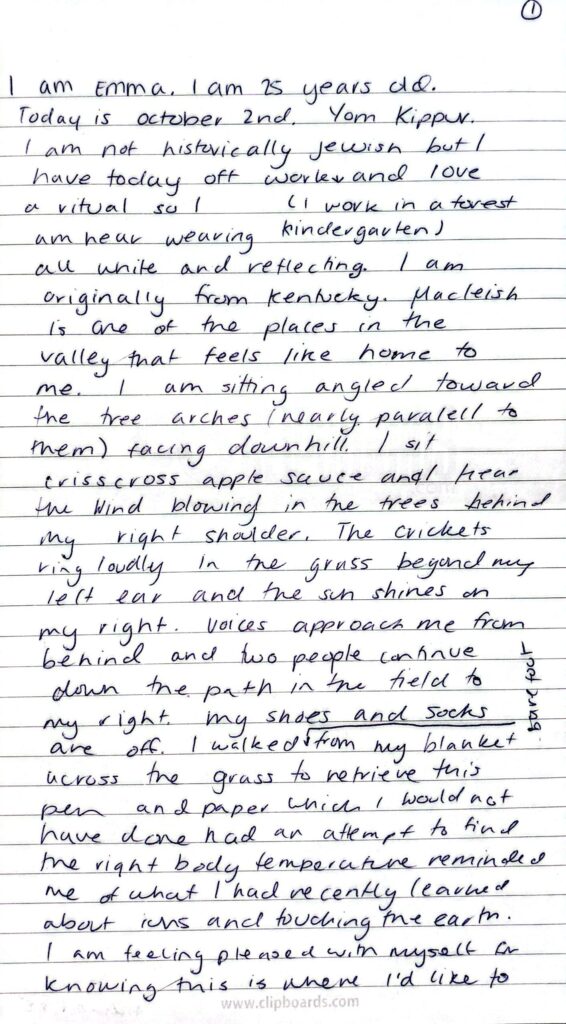 ①
I am Emma. I am 25 years old.
Today is october 2nd. Yom Kippur.
I am not historically jewish but I
have today off work and love
a ritual so I (I work in a forest
am hear wearing kindergarten)
all white and reflecting. I am
originally from Kentucky. Macleish
is one of the places in the
valley that feels like home to
me. I am sitting angled toward
the tree arches (nearly paralell to
them) facing downhill. I sit
crisscross apple sauce and hear
the wind blowing in the trees behind
my right shoulder. The crickets
ring loudly in the grass beyond my
left ear and the sun shines on
my right. Voices approach me from
behind and two people continue
down the path in the field to
my right. my shoes and socks
barefoot
are off. I walked from my blanket
across the grass to retrieve this
pen and paper which I would not
have done had an attempt to find
the right body temperature reminded
me of what I had recently learned
about ions and touching the earth.
I am feeling pleased with myself for
knowing this is where I'd like to
www.clipboards.com